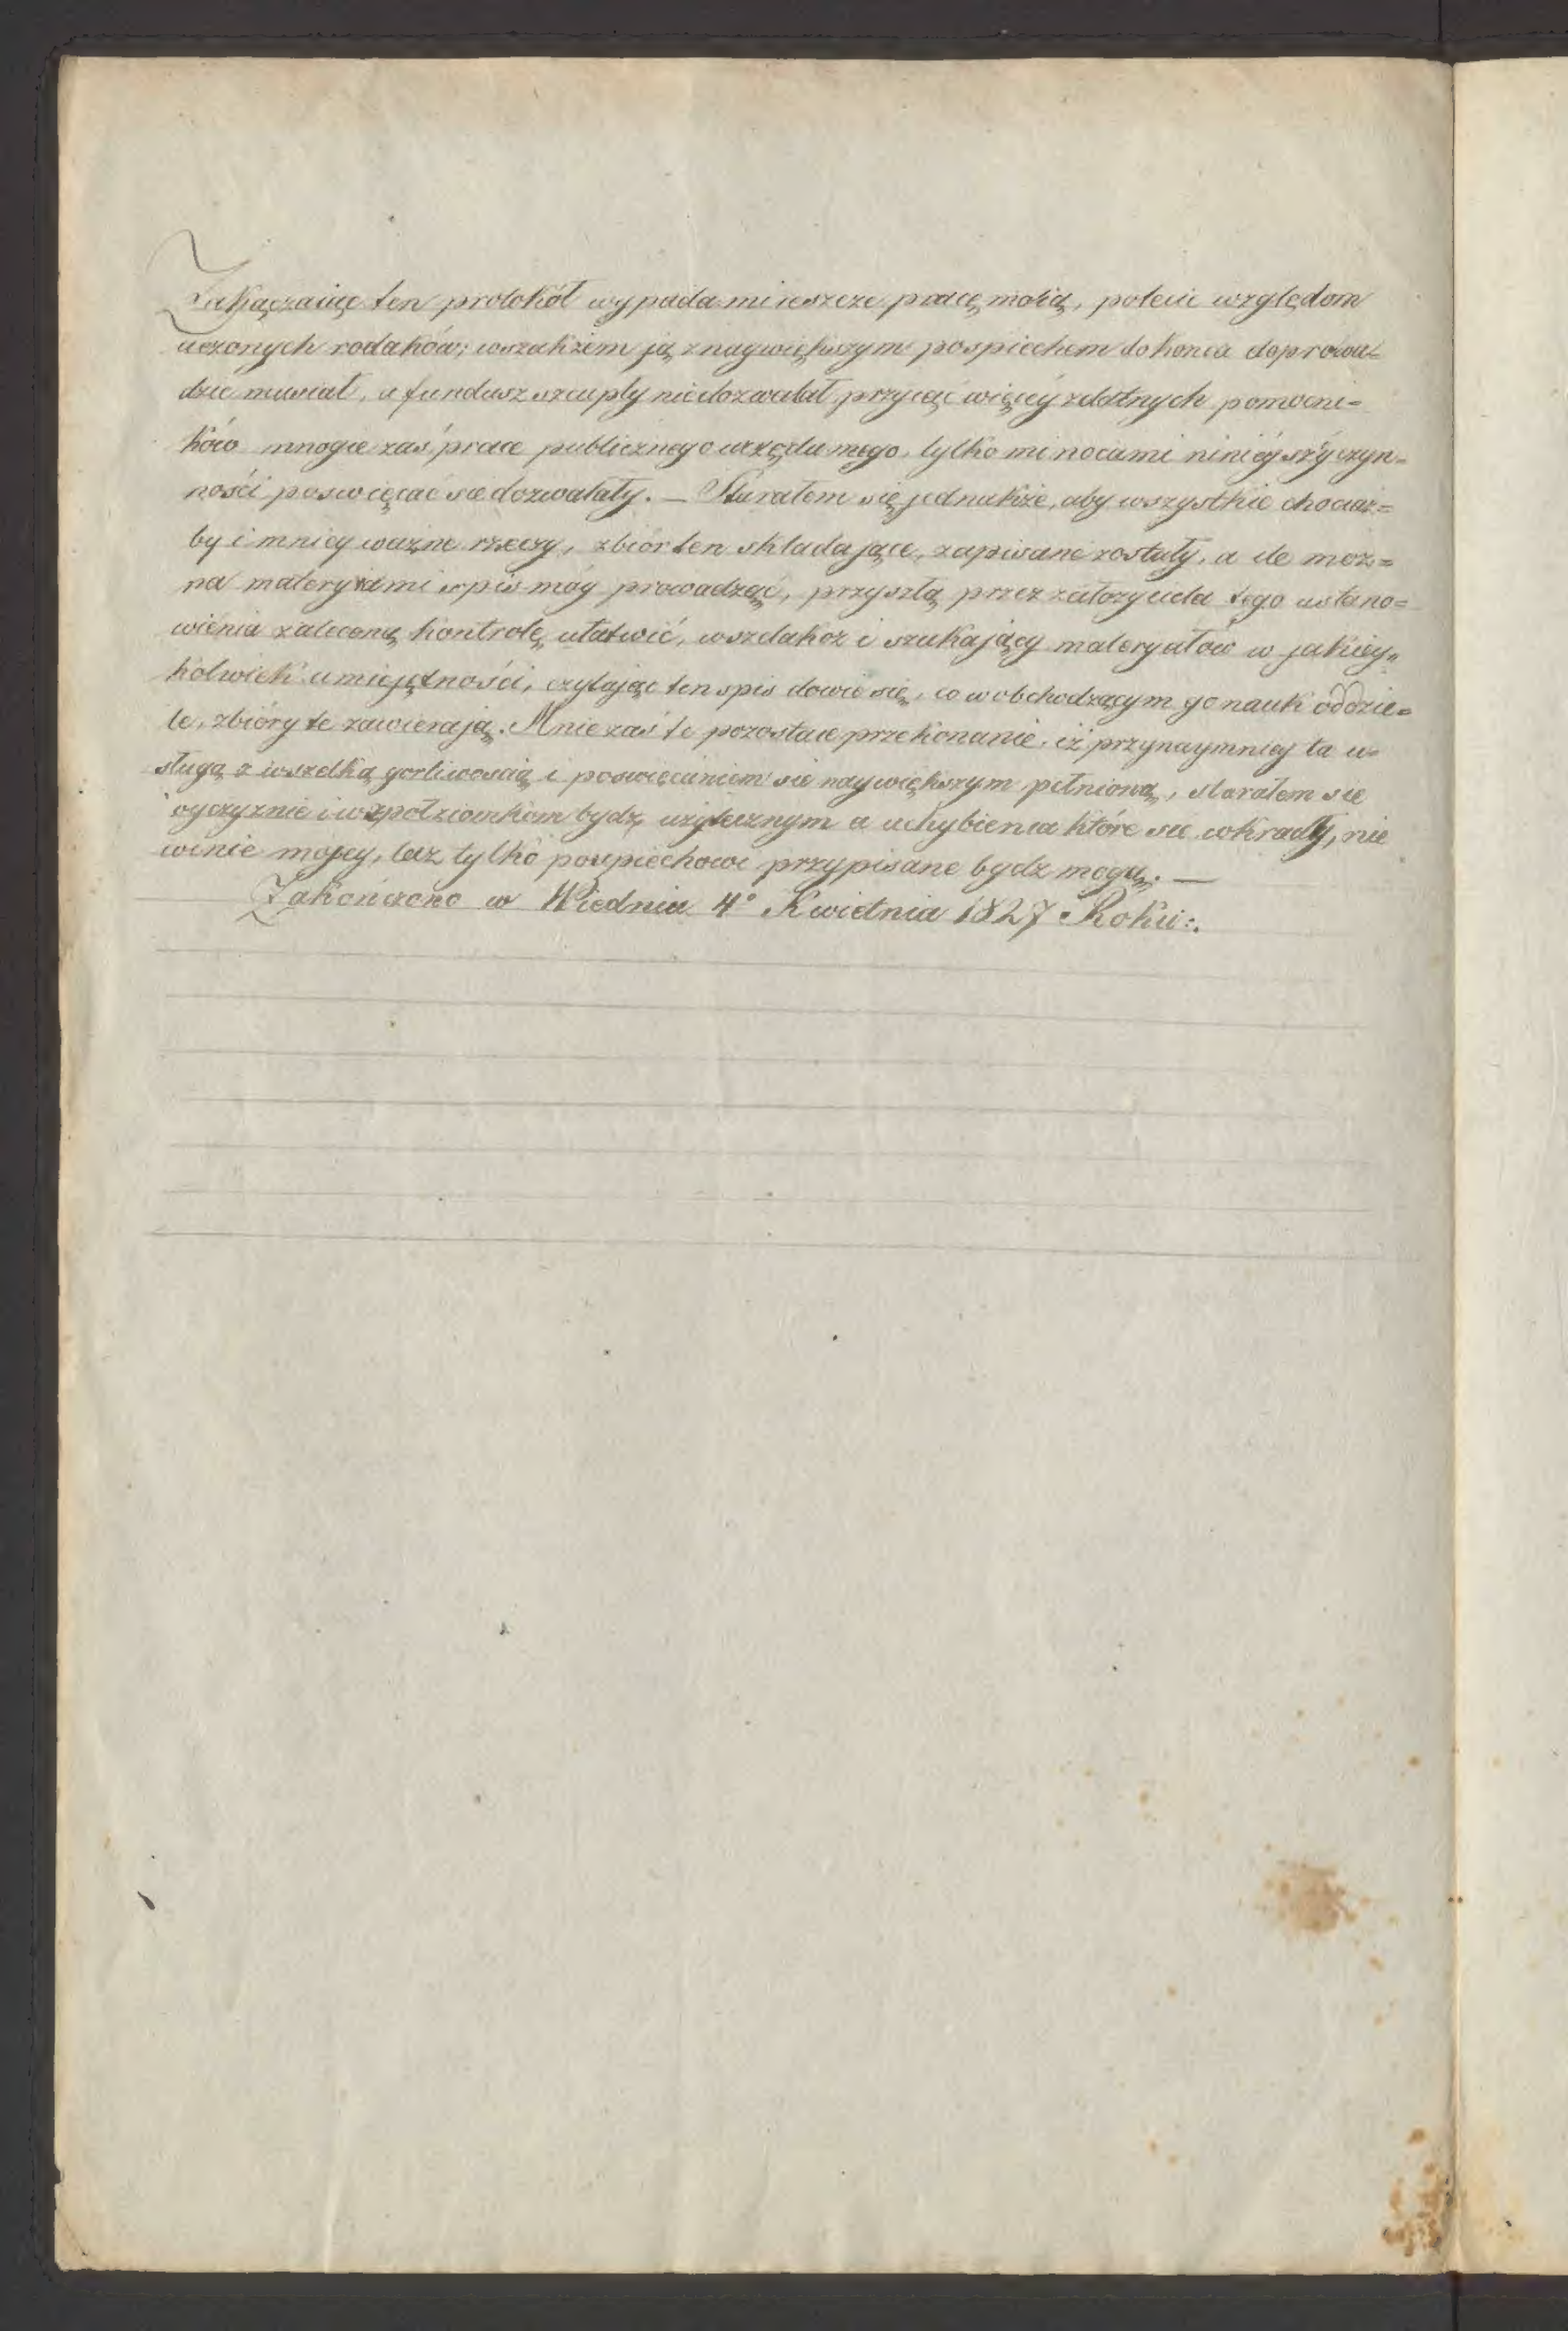 Zakączaiąc ten protokół wypada mi ieszcze pracę moią, polecić względom
uczonych rodaków; wszakżem ją z naywiększym pospiechem do końca doprowa=
dzić musiał, a fundusz szczupły nie dozwalał przyiąć więcéy zdatnych pomocni=
ków mnogie zaś prace publicznego urzędu mego, tylko mi nocami ninieyszéy czyn=
ności poswięcać się dozwalały. — Starałem się jednakże, aby wszystkie chociaż=
by i mniey ważne rzeczy, zbiór ten składające, zapisane zostały, a ile moż=
na materyiami spis móy prowadząc, przyszłą przez założyciela tego ustano=
wienia zaleconą kontrolę ułatwić, wszelakoż i szukający materyałów w jakiey„
kolwiek umiejętności, czytając ten spis dowie się, co w obchodzącym go nauki oddzie=
le, zbióry te zawierają. Mnie zaś te pozostaie przekonanie, iż przynaymniey tą u=
sługą z wszelką gorliwoscią i poswięceniem się naywiększym pełnioną, starałem się
oyczyznie i wspołziomkom bydź użytecznym a uchybienia które się wkradły, nie
winie mojey, lecz tylko pospiechowi przypisane bydz mogą. —
Zakończono w Wiedniu 4° Kwietnia 1827 Roku:.